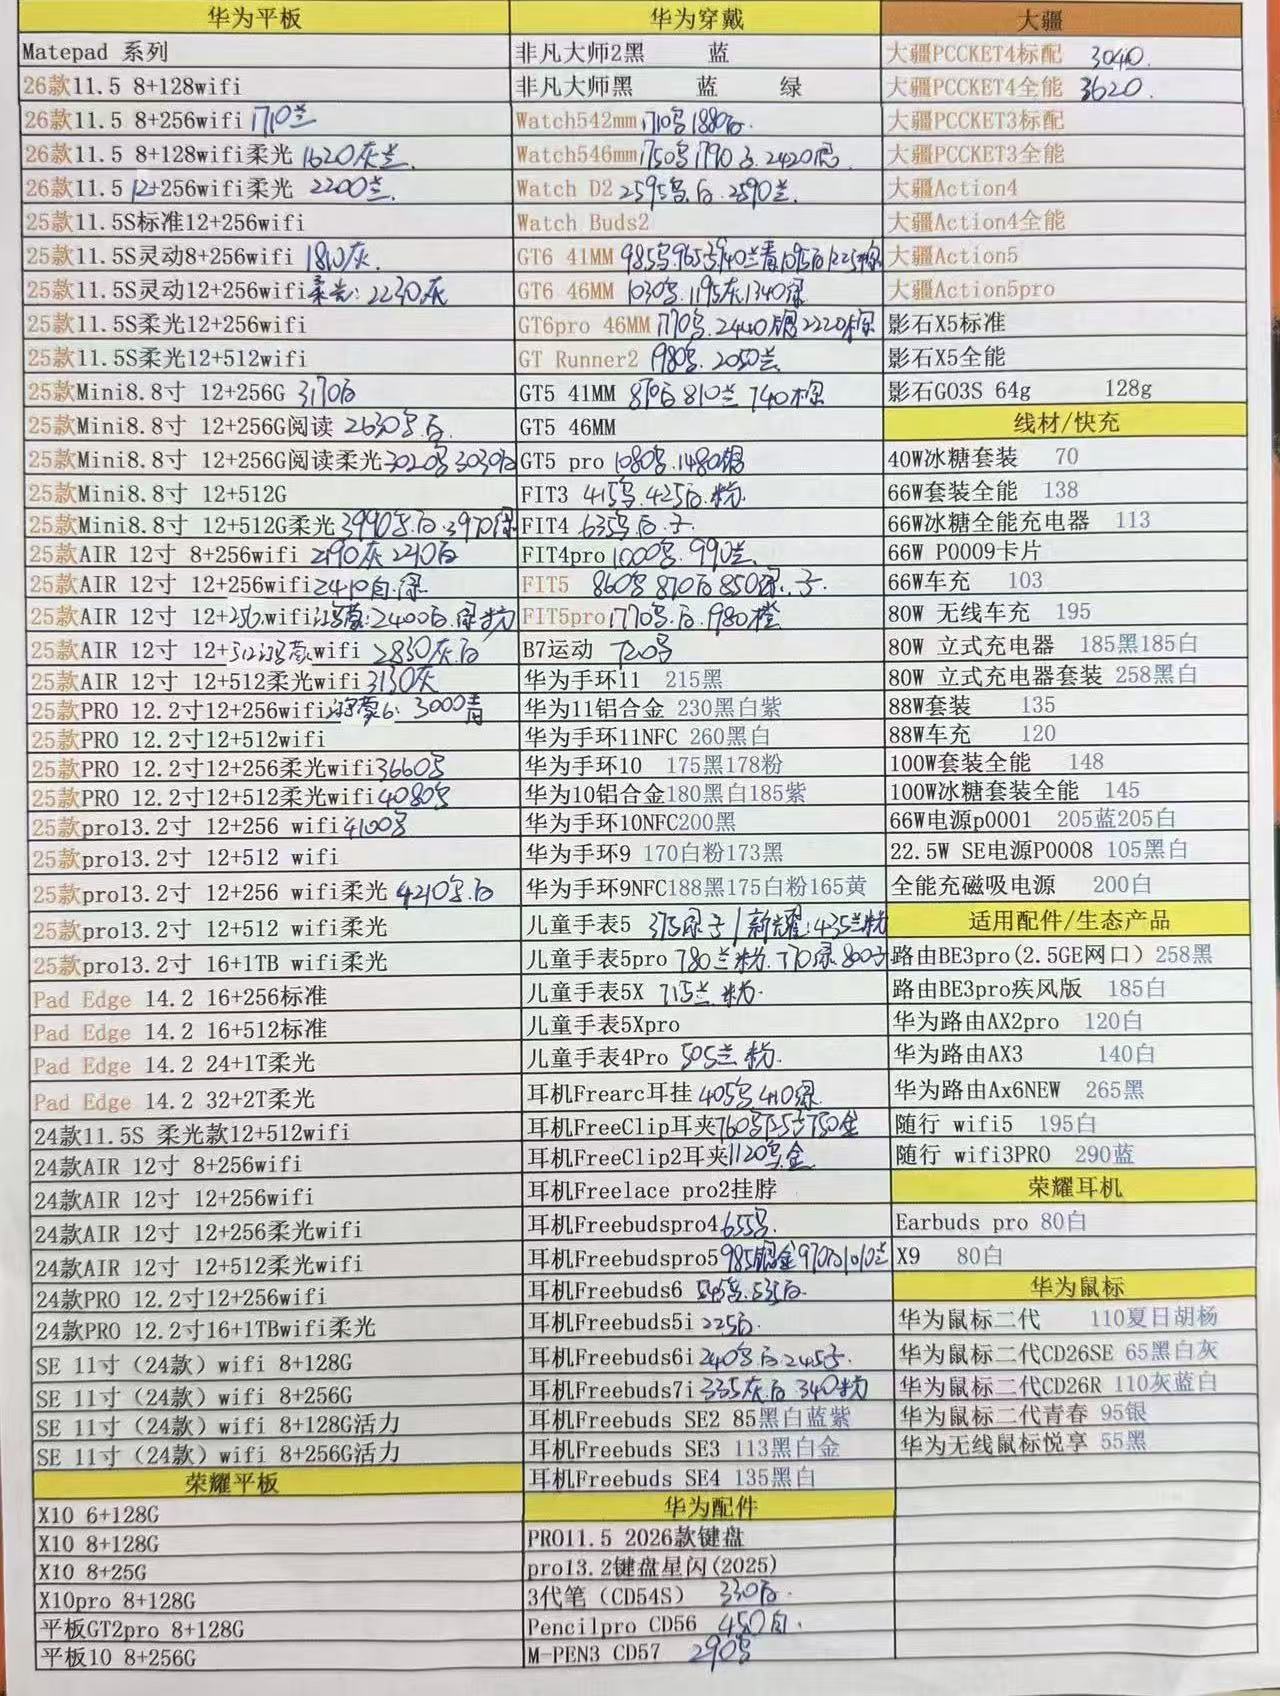 华为平板
Matepad 系列
26款11.5 8+128wifi
26款11.5 8+256wifi 1710兰
26款11.5 8+128wifi柔光 1620灰兰.
26款11.5 12+256wifi柔光 2200兰.
25款11.5S标准12+256wifi
25款11.5S灵动8+256wifi 1810灰.
25款11.5S灵动12+256wifi柔光:2230灰
25款11.5S柔光12+256wifi
25款11.5S柔光12+512wifi
25款Mini8.8寸 12+256G 3170白
25款Mini8.8寸 12+256G阅读 2630黑.白.
25款Mini8.8寸 12+256G阅读柔光3020黑3030白
25款Mini8.8寸 12+512G
25款Mini8.8寸 12+512G柔光3990黑白.3970绿
25款AIR 12寸 8+256wifi 2190灰2210白
25款AIR 12寸 12+256wifi2410白.绿
25款AIR 12寸 12+256.wifi鸿蒙:2400白.绿粉
25款AIR 12寸 12+512鸿蒙wifi 2830灰白
25款AIR 12寸 12+512柔光wifi3130灰
25款PRO 12.2寸12+256wifi鸿蒙6: 3000青
25款PRO 12.2寸12+512wifi
25款PRO 12.2寸12+256柔光wifi3660黑
25款PRO 12.2寸12+512柔光wifi4080黑
25款pro13.2寸 12+256 wifi4100黑
25款pro13.2寸 12+512 wifi
25款pro13.2寸 12+256 wifi柔光 4210黑.白
25款pro13.2寸 12+512 wifi柔光
25款pro13.2寸 16+1TB wifi柔光
Pad Edge 14.2 16+256标准
Pad Edge 14.2 16+512标准
Pad Edge 14.2 24+1T柔光
Pad Edge 14.2 32+2T柔光
24款11.5S 柔光款12+512wifi
24款AIR 12寸 8+256wifi
24款AIR 12寸 12+256wifi
24款AIR 12寸 12+256柔光wifi
24款AIR 12寸 12+512柔光wifi
24款PRO 12.2寸12+256wifi
24款PRO 12.2寸16+1TBwifi柔光
SE 11寸（24款）wifi 8+128G
SE 11寸（24款）wifi 8+256G
SE 11寸（24款）wifi 8+128G活力
SE 11寸（24款）wifi 8+256G活力
荣耀平板
X10 6+128G
X10 8+128G
X10 8+25G
X10pro 8+128G
平板GT2pro 8+128G
平板10 8+256G
华为穿戴
非凡大师2黑 蓝
非凡大师黑 蓝 绿
Watch542mm1710黑1880白.
Watch546mm1750黑1790 2420
Watch D2 2595黑.白.2590兰.
Watch Buds2
GT6 41MM 985黑965 940兰青1095白1225棕
GT6 46MM 1030黑.1195灰1340绿
GT6pro 46MM 1770黑.2440银2220棕
GT Runner2 1980黑.2050兰
GT5 41MM 870白810兰 740棕
GT5 46MM
GT5 pro 1080黑.1480银
FIT3 415黑.425白.粉
FIT4 635黑白.子.
FIT4pro1000黑.990兰
FIT5 860黑870白850绿.子
FIT5pro1770黑.白.1980橙
B7运动 720黑
华为手环11 215黑
华为11铝合金 230黑白紫
华为手环11NFC 260黑白
华为手环10 175黑178粉
华为10铝合金180黑白185紫
华为手环10NFC200黑
华为手环9 170白粉173黑
华为手环9NFC188黑175白粉165黄
儿童手表5 375绿子/新光耀:435兰粉
儿童手表5pro 780兰粉.770绿800子
儿童手表5X 715兰 粉.
儿童手表5Xpro
儿童手表4Pro 505兰 粉.
耳机Frearc耳挂 405黑410绿.
耳机FreeClip耳夹760黑 750金
耳机FreeClip2耳夹1120黑金
耳机Freelace pro2挂脖
耳机Freebudspro4655黑.
耳机Freebudspro5985银金970白1010兰
耳机Freebuds6 545黑.535白.
耳机Freebuds5i 225白.
耳机Freebuds6i 240黑白.245子.
耳机Freebuds7i 335灰白.340粉
耳机Freebuds SE2 85黑白蓝紫
耳机Freebuds SE3 113黑白金
耳机Freebuds SE4 135黑白
华为配件
PRO11.5 2026款键盘
pro13.2键盘星闪(2025)
3代笔（CD54S） 330白.
Pencilpro CD56 450白.
M-PEN3 CD57 290黑
大疆
大疆PCCKET4标配 3040.
大疆PCCKET4全能 3620.
大疆PCCKET3标配
大疆PCCKET3全能
大疆Action4
大疆Action4全能
大疆Action5
大疆Action5pro
影石X5标准
影石X5全能
影石GO3S 64g 128g
线材/快充
40W冰糖套装 70
66W套装全能 138
66W冰糖全能充电器 113
66W P0009卡片
66W车充 103
80W 无线车充 195
80W 立式充电器 185黑185白
80W 立式充电器套装 258黑白
88W套装 135
88W车充 120
100W套装全能 148
100W冰糖套装全能 145
66W电源p0001 205蓝205白
22.5W SE电源P0008 105黑白
全能充磁吸电源 200白
适用配件/生态产品
路由BE3pro(2.5GE网口）258黑
路由BE3pro疾风版 185白
华为路由AX2pro 120白
华为路由AX3 140白
华为路由Ax6NEW 265黑
随行 wifi5 195白
随行 wifi3PRO 290蓝
荣耀耳机
Earbuds pro 80白
X9 80白
华为鼠标
华为鼠标二代 110夏日胡杨
华为鼠标二代CD26SE 65黑白灰
华为鼠标二代CD26R 110灰蓝白
华为鼠标二代青春 95银
华为无线鼠标悦享 55黑